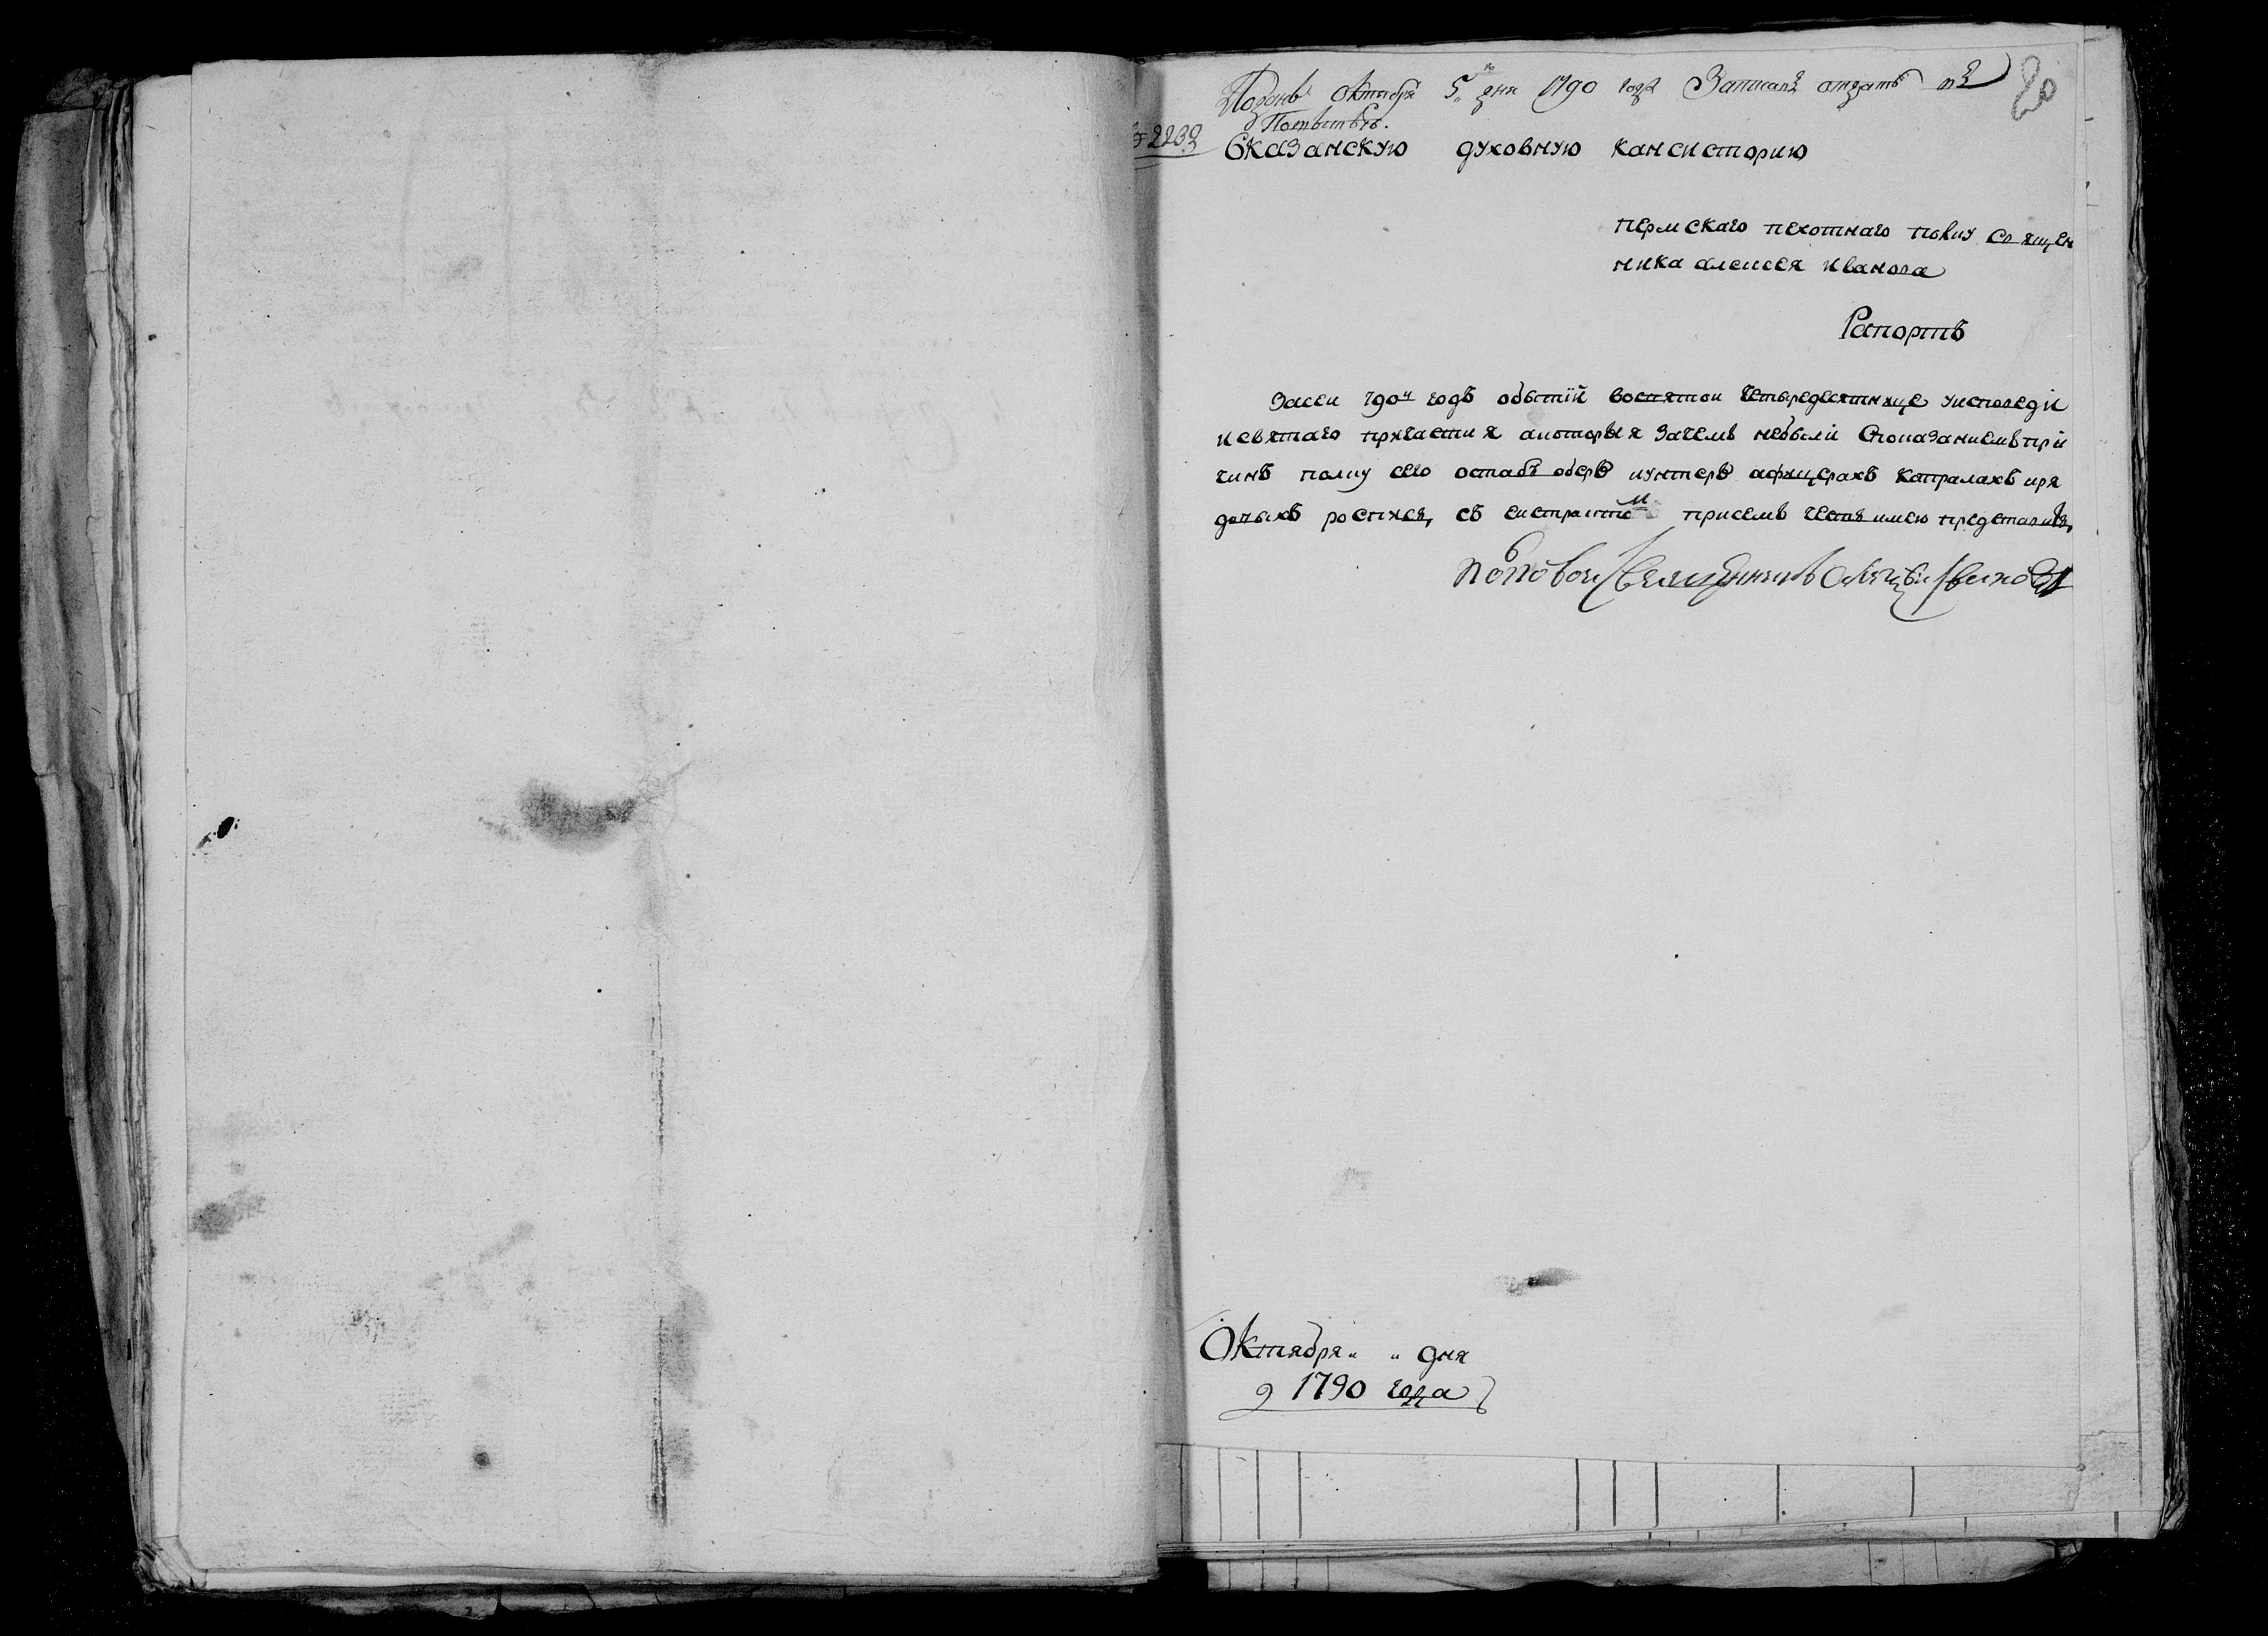 Подонъ октября 5го дня 1790 года Записавъ отдать в 20
Повытье.
№ 2232
Вказанскую духовную кансисторию
пермскаго пехотнаго полку священ
ника алексея иванова
Рапортъ
Засеи 790й годъ обытїй восвятои четыредесятнице уисповедїи
исвятаго причастия акоторыя зачемъ небыли споказаниемъ при
чинъ полку сего оштабъ оберъ иунтеръ афицерахъ капралахъ иря
довыхъ роспися, съ екстрактомъ присемъ честь имею представить,
полковои священникъ алексѣй ивановъ
Октября „ „ дня
1790 года